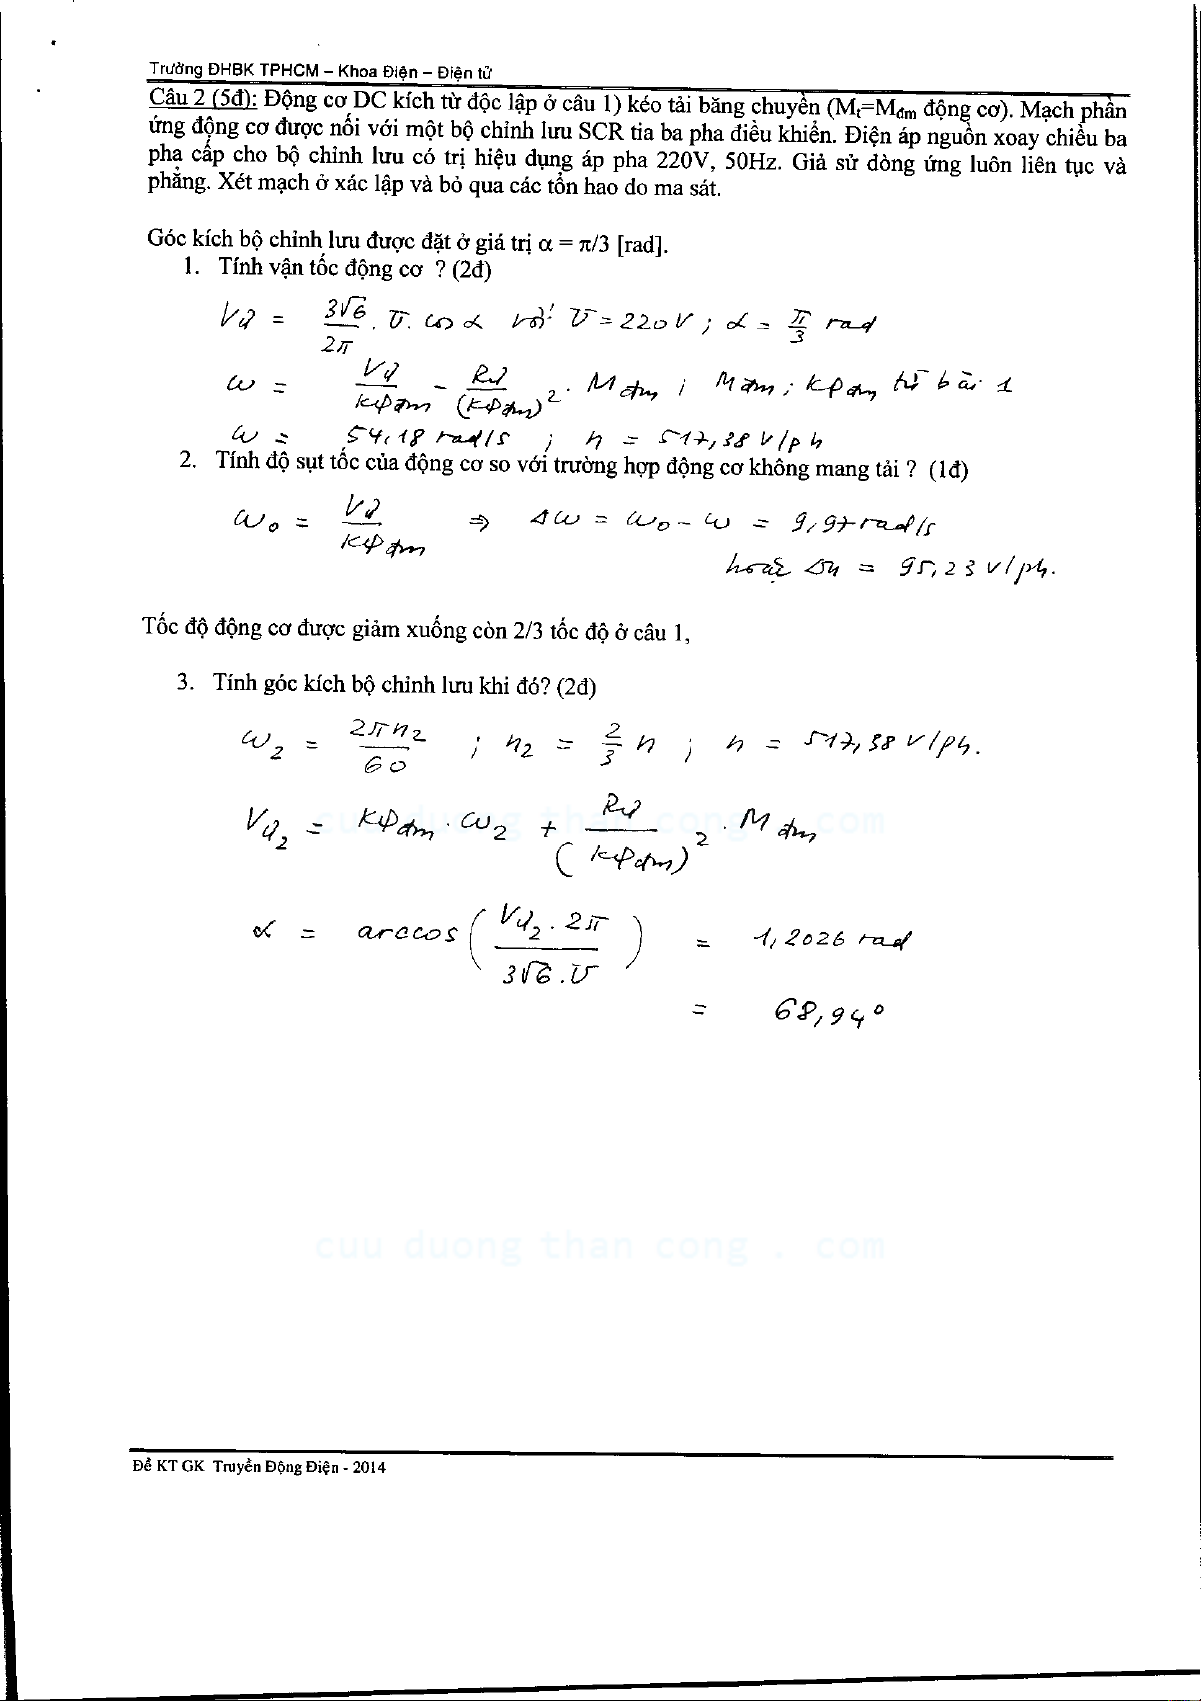 Trường ĐHBK TPHCM – Khoa Điện – Điện tử
Câu 2 (5đ): Động cơ DC kích từ độc lập ở câu 1) kéo tải băng chuyền (Mt=Mđm động cơ). Mạch phần
ứng động cơ được nối với một bộ chỉnh lưu SCR tia ba pha điều khiển. Điện áp nguồn xoay chiều ba
pha cấp cho bộ chỉnh lưu có trị hiệu dụng áp pha 220V, 50Hz. Giả sử dòng ứng luôn liên tục và
phẳng. Xét mạch ở xác lập và bỏ qua các tổn hao do ma sát.
Góc kích bộ chỉnh lưu được đặt ở giá trị α = π/3 [rad].
1. Tính vận tốc động cơ ? (2đ)
Vư = 3√6/2π . U. cos α với U = 220V ; α = π/3 rad
ω = Vư/Kφđm - Rư/(Kφđm)² . Mđm ; Mđm ; Kφđm từ bài 1
ω = 54,18 rad/s ; n = 517,38 v/ph
2. Tính độ sụt tốc của động cơ so với trường hợp động cơ không mang tải ? (1đ)
ω₀ = Vư/Kφđm ⇒ Δω = ω₀ - ω = 9,97 rad/s
hoặc Δn = 95,23 v/ph.
Tốc độ động cơ được giảm xuống còn 2/3 tốc độ ở câu 1,
3. Tính góc kích bộ chỉnh lưu khi đó? (2đ)
ω₂ = 2πn₂/60 ; n₂ = 2/3 n ; n = 517,38 v/ph.
Vư₂ = Kφđm . ω₂ + Rư/(Kφđm)² . Mđm
α = arccos(Vư₂ . 2π / 3√6 . U) = 1,2026 rad
= 68,94°
cuu duong than cong . com
cuu duong than cong . com
Đề KT GK Truyền Động Điện - 2014